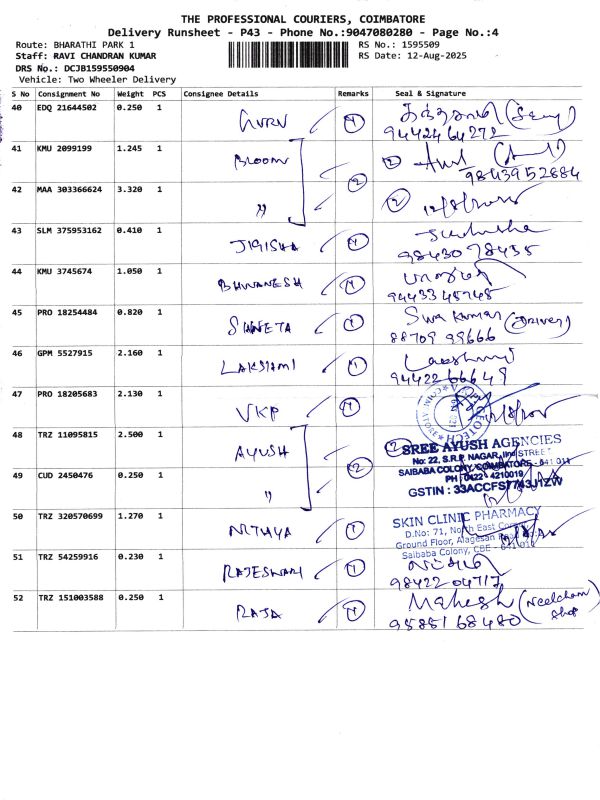 THE PROFESSIONAL COURIERS, COIMBATORE
Delivery Runsheet - P43 - Phone No.:9047080280 - Page No.:4
Route: BHARATHI PARK 1
RS No.: 1595509
Staff: RAVI CHANDRAN KUMAR
RS Date: 12-Aug-2025
DRS No.: DCJB159550904
Vehicle: Two Wheeler Delivery
S No Consignment No Weight PCS Consignee Details Remarks Seal & Signature
40 EDQ 21644502 0.250 1
GURU 1
9442464272
41 KMU 2099199 1.245 1
BLOOM 2
9843952884
42 MAA 303366624 3.320 1
" 2 12/8/2025
43 SLM 375953162 0.410 1
JIGISHA 1
98430 78435
44 KMU 3745674 1.050 1
BHUVANESH 1
94433 45748
45 PRO 18254484 0.820 1
SHWETA 1 Siva Kumar (Driver)
88709 99666
46 GPM 5527915 2.160 1
LAKSHMI 1 Lakshmi
9442266649
47 PRO 18205683 2.130 1
VKP 1
48 TRZ 11095815 2.500 1
AYUSH 2
SREE AYUSH AGENCIES
No: 22, S.R.P. NAGAR, IInd STREET
SAIBABA COLONY, COIMBATORE - 641 011
PH : 0422 4210019
GSTIN : 33ACCFS7743J1ZW
49 CUD 2450476 0.250 1
"
50 TRZ 320570699 1.270 1
NITHYA 1
SKIN CLINIC PHARMACY
D.No: 71, North East
Ground Floor, Alagesan
Saibaba Colony, CBE - 641 011
51 TRZ 54259916 0.230 1
RAJESWARI 1
98422 04717
52 TRZ 151003588 0.250 1
RAJA 1 Mahesh (Neelcham Shop)
95851 68480